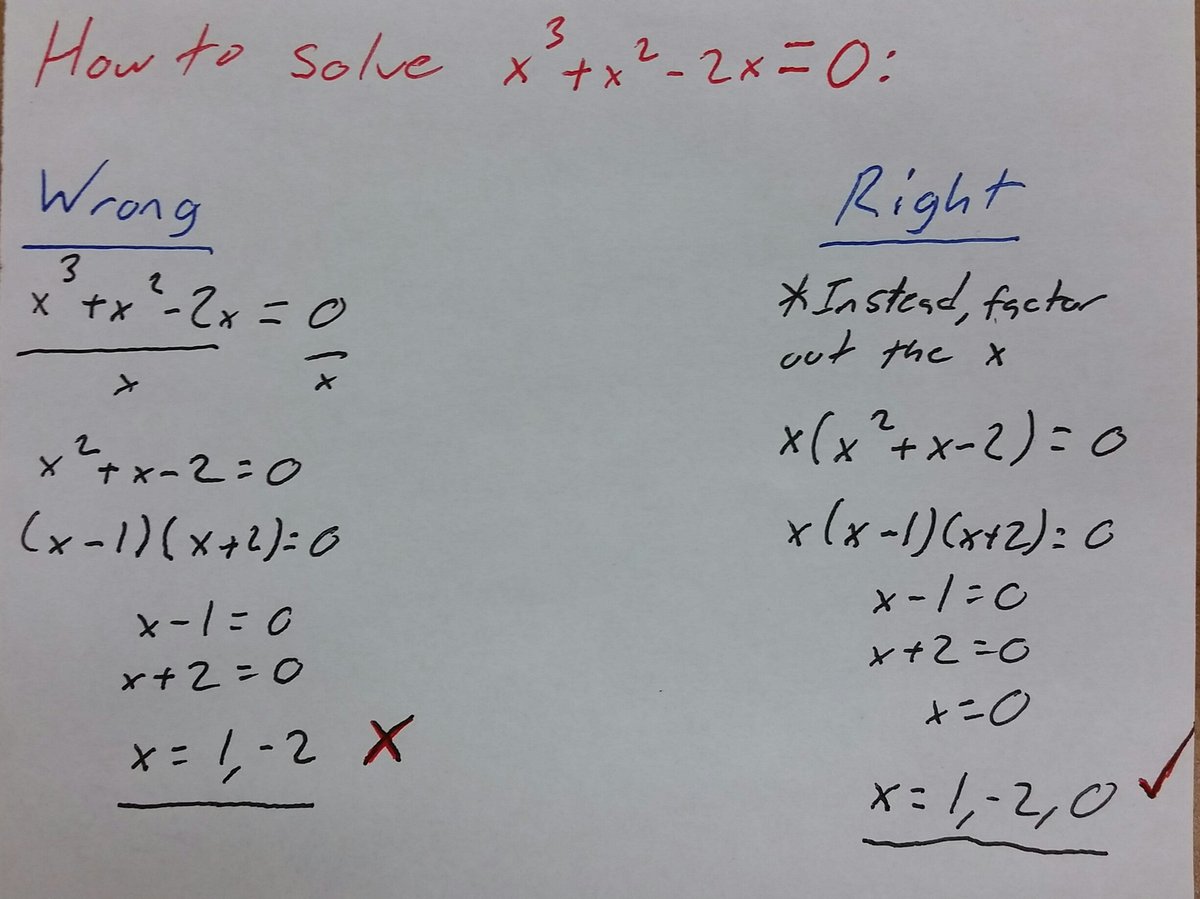 How to solve x³+x²-2x=0:
Wrong
x³+x²-2x = 0
x x
x²+x-2=0
(x-1)(x+2)=0
x-1=0
x+2=0
x=1,-2 X
Right
*Instead, factor
out the x
x(x²+x-2)=0
x(x-1)(x+2)=0
x-1=0
x+2=0
x=0
x=1,-2,0 ✓